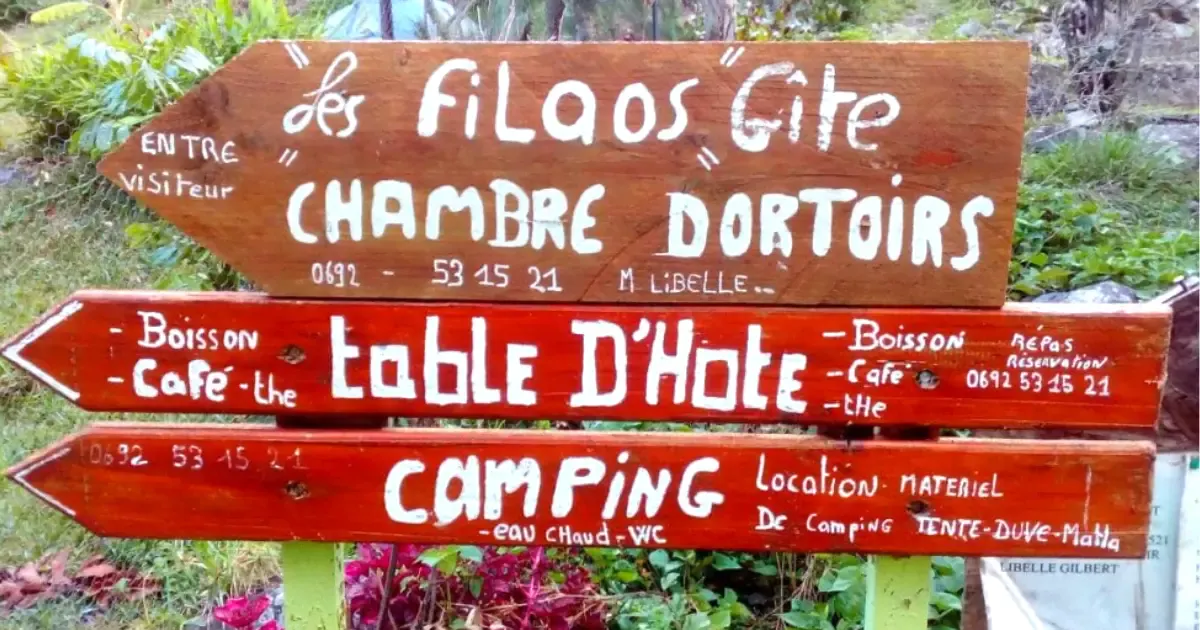 "Les FiLaos" Gîte "
ENTRE
visiteur
" CHAMBRE DORTOIRS
0692 - 53 15 21 M LiBELLE..
- Boisson
- Café - the
table D'Hote
- Boisson
- Café
- tHe
RÉPAS
RÉSERVATION
0692 53 15 21
0692 53 15 21
CAMPiNG
- eau CHaud - WC
Location MATERIEL
De Camping TENTE-DUVE-MaTla
521
IR
LIBELLE GILBERT